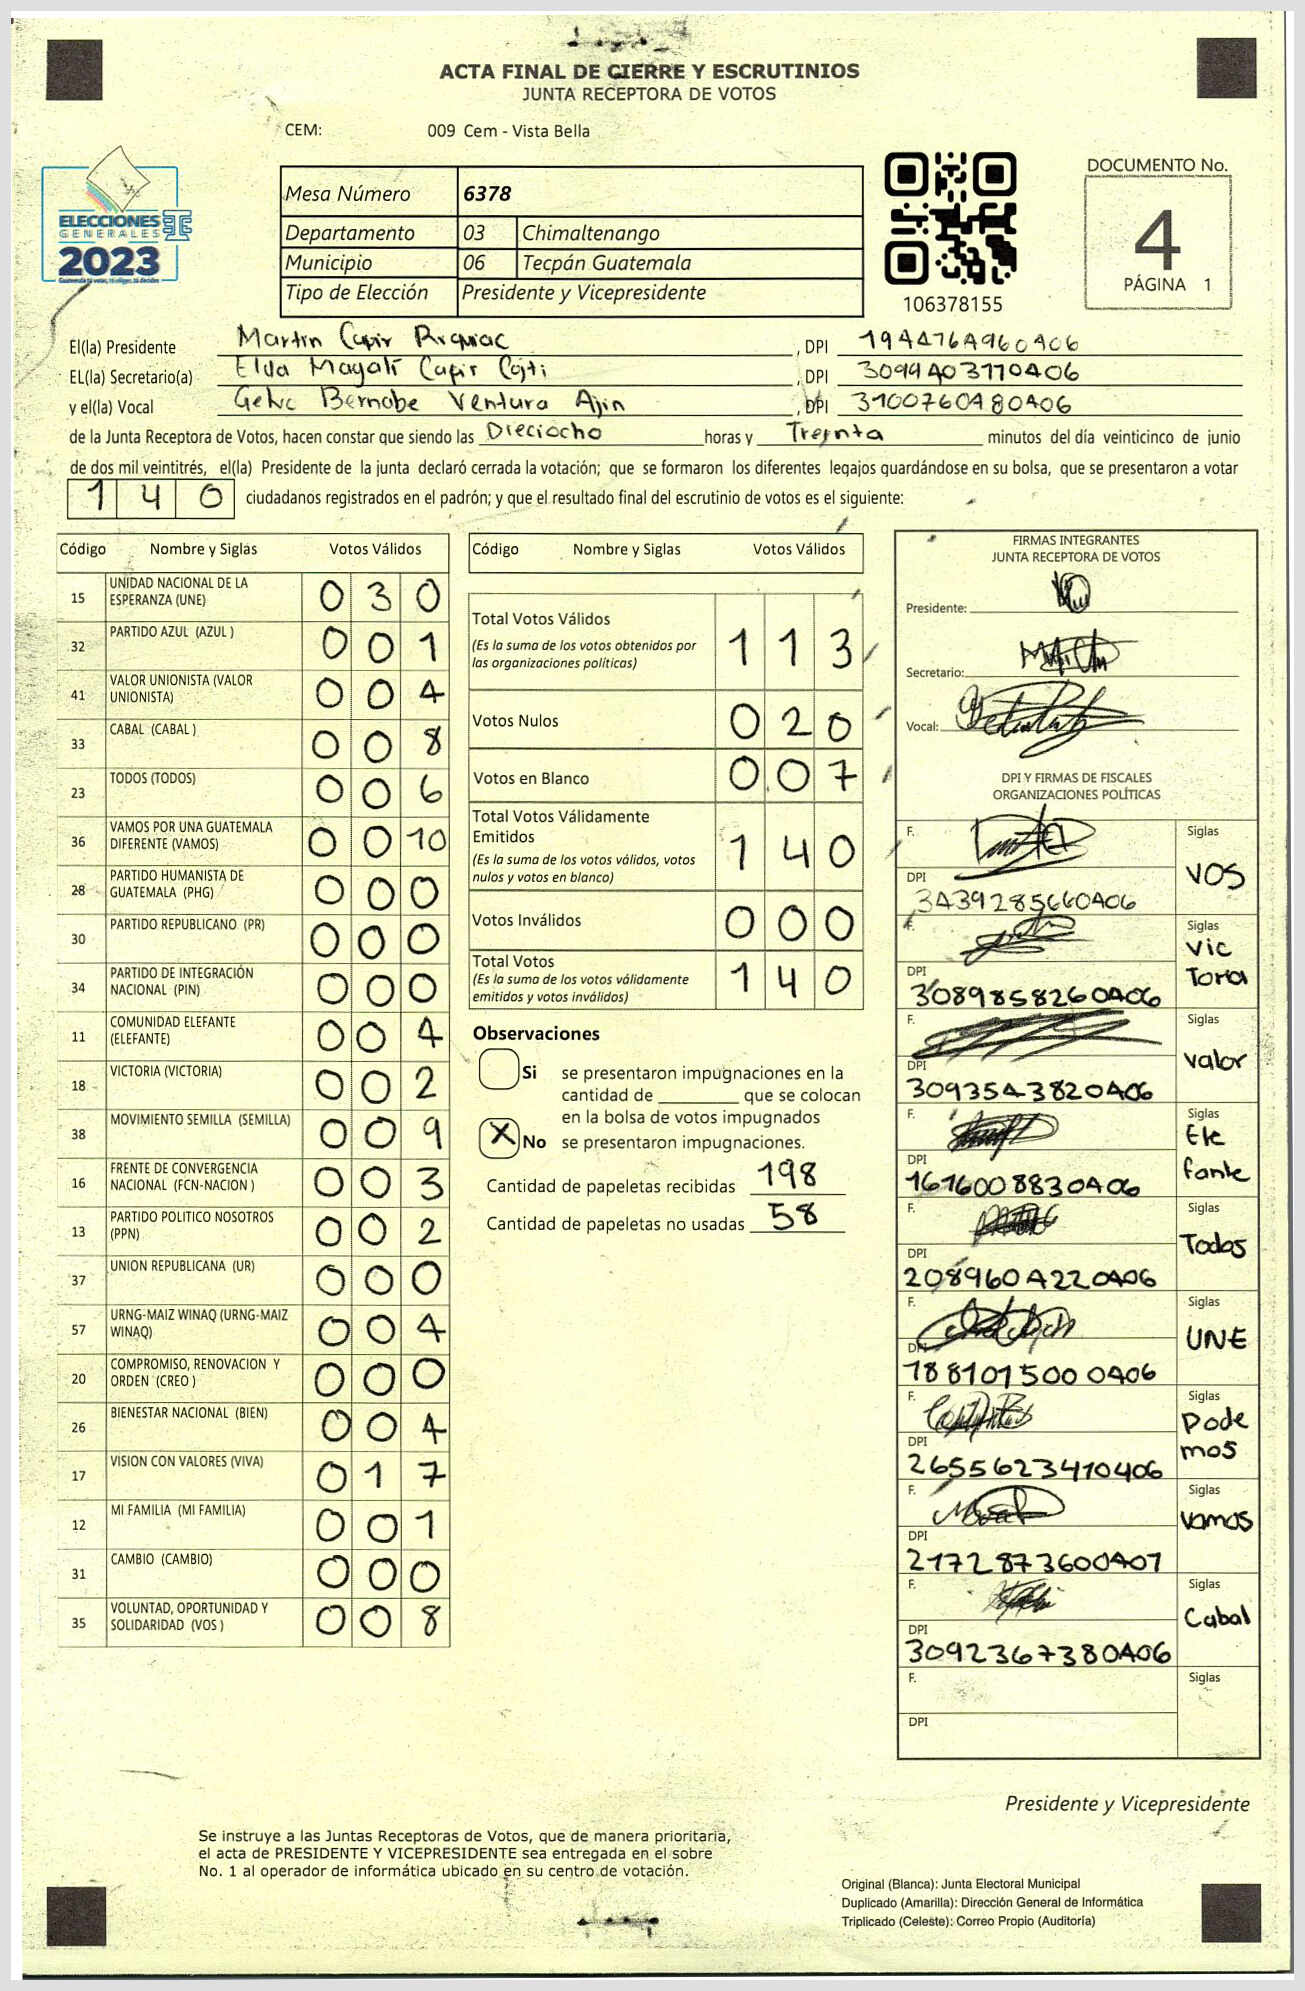 ACTA FINAL DE CIERRE Y ESCRUTINIOS
JUNTA RECEPTORA DE VOTOS
CEM: 009 Cem - Vista Bella
ELECCIONES
GENERALES
2023
Mesa Número 6378
Departamento 03 Chimaltenango
Municipio 06 Tecpán Guatemala
Tipo de Elección Presidente y Vicepresidente
106378155
DOCUMENTO No.
4
PÁGINA 1
El(la) Presidente Martin Capir , DPI 1944764960406
EL(la) Secretario(a) Elda Magalí Capir Cojti , DPI 3099403170406
y el(la) Vocal Bernabe Ventura Ajin , DPI 3100760480406
de la Junta Receptora de Votos, hacen constar que siendo las Dieciocho horas y Treinta minutos del día veinticinco de junio
de dos mil veintitrés, el(la) Presidente de la junta declaró cerrada la votación; que se formaron los diferentes legajos guardándose en su bolsa, que se presentaron a votar
140 ciudadanos registrados en el padrón; y que el resultado final del escrutinio de votos es el siguiente:
Código Nombre y Siglas Votos Válidos
15 UNIDAD NACIONAL DE LA ESPERANZA (UNE) 0 3 0
32 PARTIDO AZUL (AZUL ) 0 0 1
41 VALOR UNIONISTA (VALOR UNIONISTA) 0 0 4
33 CABAL (CABAL ) 0 0 8
23 TODOS (TODOS) 0 0 6
36 VAMOS POR UNA GUATEMALA DIFERENTE (VAMOS) 0 0 10
28 PARTIDO HUMANISTA DE GUATEMALA (PHG) 0 0 0
30 PARTIDO REPUBLICANO (PR) 0 0 0
34 PARTIDO DE INTEGRACIÓN NACIONAL (PIN) 0 0 0
11 COMUNIDAD ELEFANTE (ELEFANTE) 0 0 4
18 VICTORIA (VICTORIA) 0 0 2
38 MOVIMIENTO SEMILLA (SEMILLA) 0 0 9
16 FRENTE DE CONVERGENCIA NACIONAL (FCN-NACION ) 0 0 3
13 PARTIDO POLITICO NOSOTROS (PPN) 0 0 2
37 UNION REPUBLICANA (UR) 0 0 0
57 URNG-MAIZ WINAQ (URNG-MAIZ WINAQ) 0 0 4
20 COMPROMISO, RENOVACION Y ORDEN (CREO ) 0 0 0
26 BIENESTAR NACIONAL (BIEN) 0 0 4
17 VISION CON VALORES (VIVA) 0 1 7
12 MI FAMILIA (MI FAMILIA) 0 0 1
31 CAMBIO (CAMBIO) 0 0 0
35 VOLUNTAD, OPORTUNIDAD Y SOLIDARIDAD (VOS ) 0 0 8
Código Nombre y Siglas Votos Válidos
Total Votos Válidos 1 1 3
(Es la suma de los votos obtenidos por
las organizaciones políticas)
Votos Nulos 0 2 0
Votos en Blanco 0 0 7
Total Votos Válidamente
Emitidos 1 4 0
(Es la suma de los votos válidos, votos
nulos y votos en blanco)
Votos Inválidos 0 0 0
Total Votos 1 4 0
(Es la suma de los votos válidamente
emitidos y votos inválidos)
Observaciones
Si se presentaron impugnaciones en la
cantidad de ________ que se colocan
en la bolsa de votos impugnados
X No se presentaron impugnaciones.
Cantidad de papeletas recibidas 198
Cantidad de papeletas no usadas 58
FIRMAS INTEGRANTES
JUNTA RECEPTORA DE VOTOS
Presidente:
Secretario:
Vocal:
DPI Y FIRMAS DE FISCALES
ORGANIZACIONES POLÍTICAS
F. Siglas
VOS
DPI
3439285660406
F. Siglas
Vic
Toria
DPI
3089858260406
F. Siglas
Valor
DPI
3093543820406
F. Siglas
Ele
fante
DPI
1616008830406
F. Siglas
Todos
DPI
2089604220406
F. Siglas
UNE
DPI
1881015000406
F. Siglas
Pode
mos
DPI
2655623410406
F. Siglas
Vamos
DPI
2172873600407
F. Siglas
Cabal
DPI
3092367380406
F. Siglas
DPI
Presidente y Vicepresidente
Se instruye a las Juntas Receptoras de Votos, que de manera prioritaria,
el acta de PRESIDENTE Y VICEPRESIDENTE sea entregada en el sobre
No. 1 al operador de informática ubicado en su centro de votación.
Original (Blanca): Junta Electoral Municipal
Duplicado (Amarilla): Dirección General de Informática
Triplicado (Celeste): Correo Propio (Auditoría)